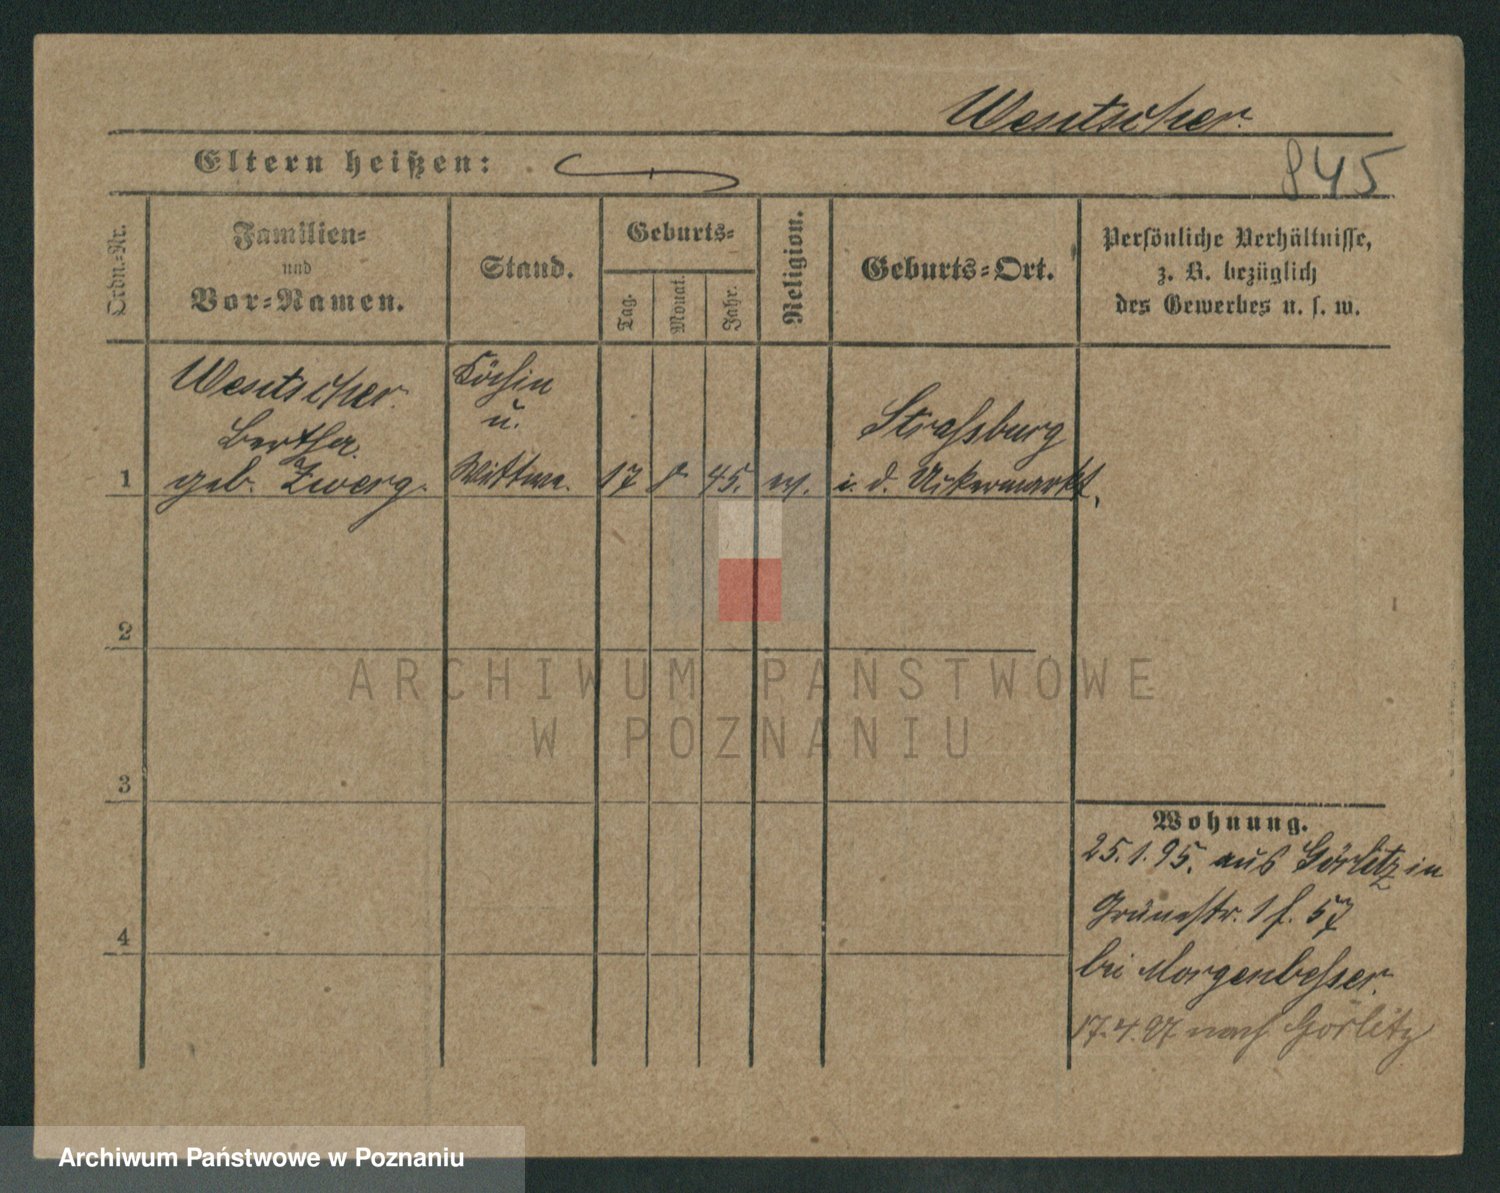 Wentscher.
845
Eltern heißen:
Ordn.-Nr.
Familien-
und
Vor-Namen.
Stand.
Geburts-
Tag.
Monat.
Jahr.
Religion.
Geburts-Ort.
Persönliche Verhältnisse,
z. B. bezüglich
des Gewerbes u. s. w.
Wentscher.
Bertha.
geb. Zwerg.
Köchin
u.
Wittwe.
1
17
8
45.
ev.
Strassburg
i. d. Uckermarkt,
2
3
4
Wohnung.
25.1.95. aus Görlitz in
Grünestr. 1 f. 57
bei Morgenbesser.
17.4.97 nach Görlitz
ARCHIWUM PAŃSTWOWE
W POZNANIU
Archiwum Państwowe w Poznaniu